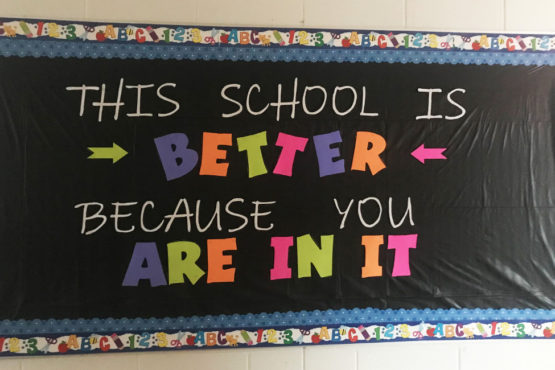 THIS SCHOOL IS
BETTER
BECAUSE YOU
ARE IN IT